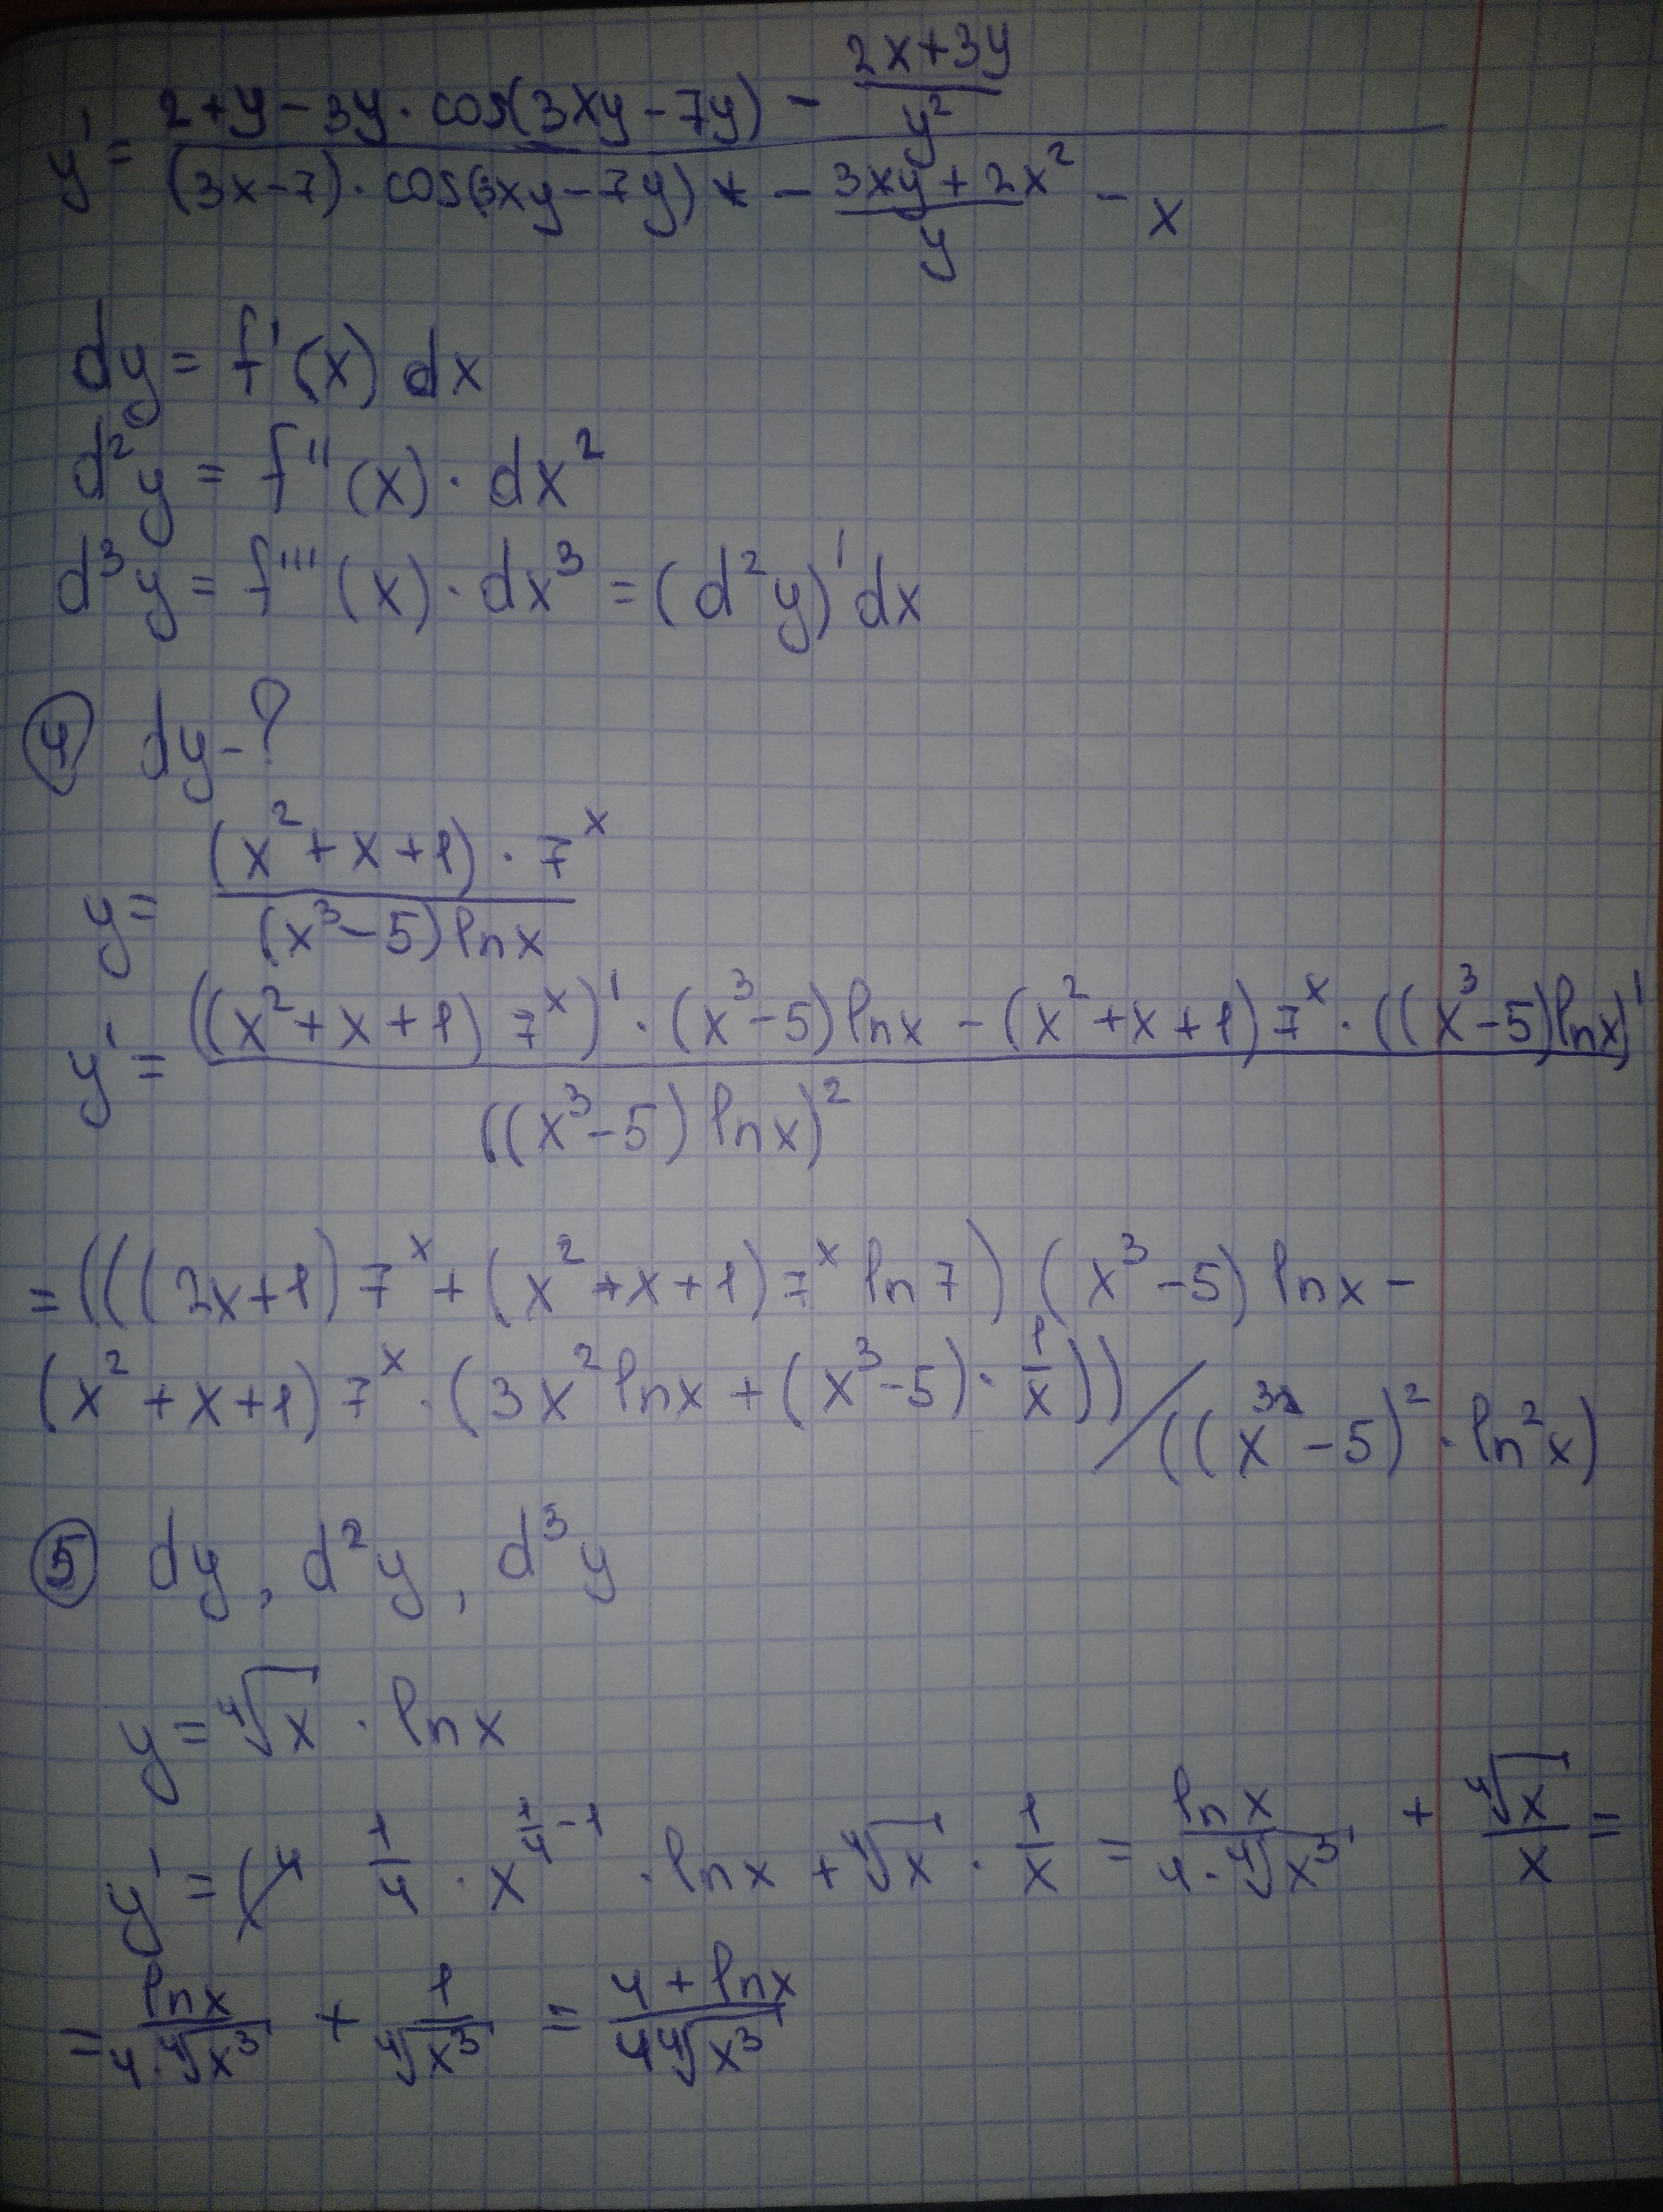 y' = (2+y−3y·cos(3xy−7y) − (2x+3y)/y²) / ((3x−7)·cos(3xy−7y) − (3xy+2x²)/y − x)
dy = f'(x) dx
d²y = f''(x)·dx²
d³y = f'''(x)·dx³ = (d²y)'dx
④ dy-?
y = ((x²+x+1)·7ˣ) / ((x³−5)lnx)
y' = (((x²+x+1) 7ˣ)'·(x³−5)lnx − (x²+x+1)7ˣ·((x³−5)lnx)') / ((x³−5) lnx)²
= (((2x+1)7ˣ+(x²+x+1)7ˣ ln7) (x³−5) lnx −
(x²+x+1)7ˣ·(3x²lnx+(x³−5)·1/x)) / ((x³−5)²·ln²x)
⑤ dy, d²y, d³y
y = ⁴√x · lnx
y' = 1/4 · x^(1/4−1) · lnx + ⁴√x · 1/x = lnx/(4·⁴√x³) + ⁴√x/x =
= lnx/(4·⁴√x³) + 1/⁴√x³ = (4+lnx)/(4⁴√x³)